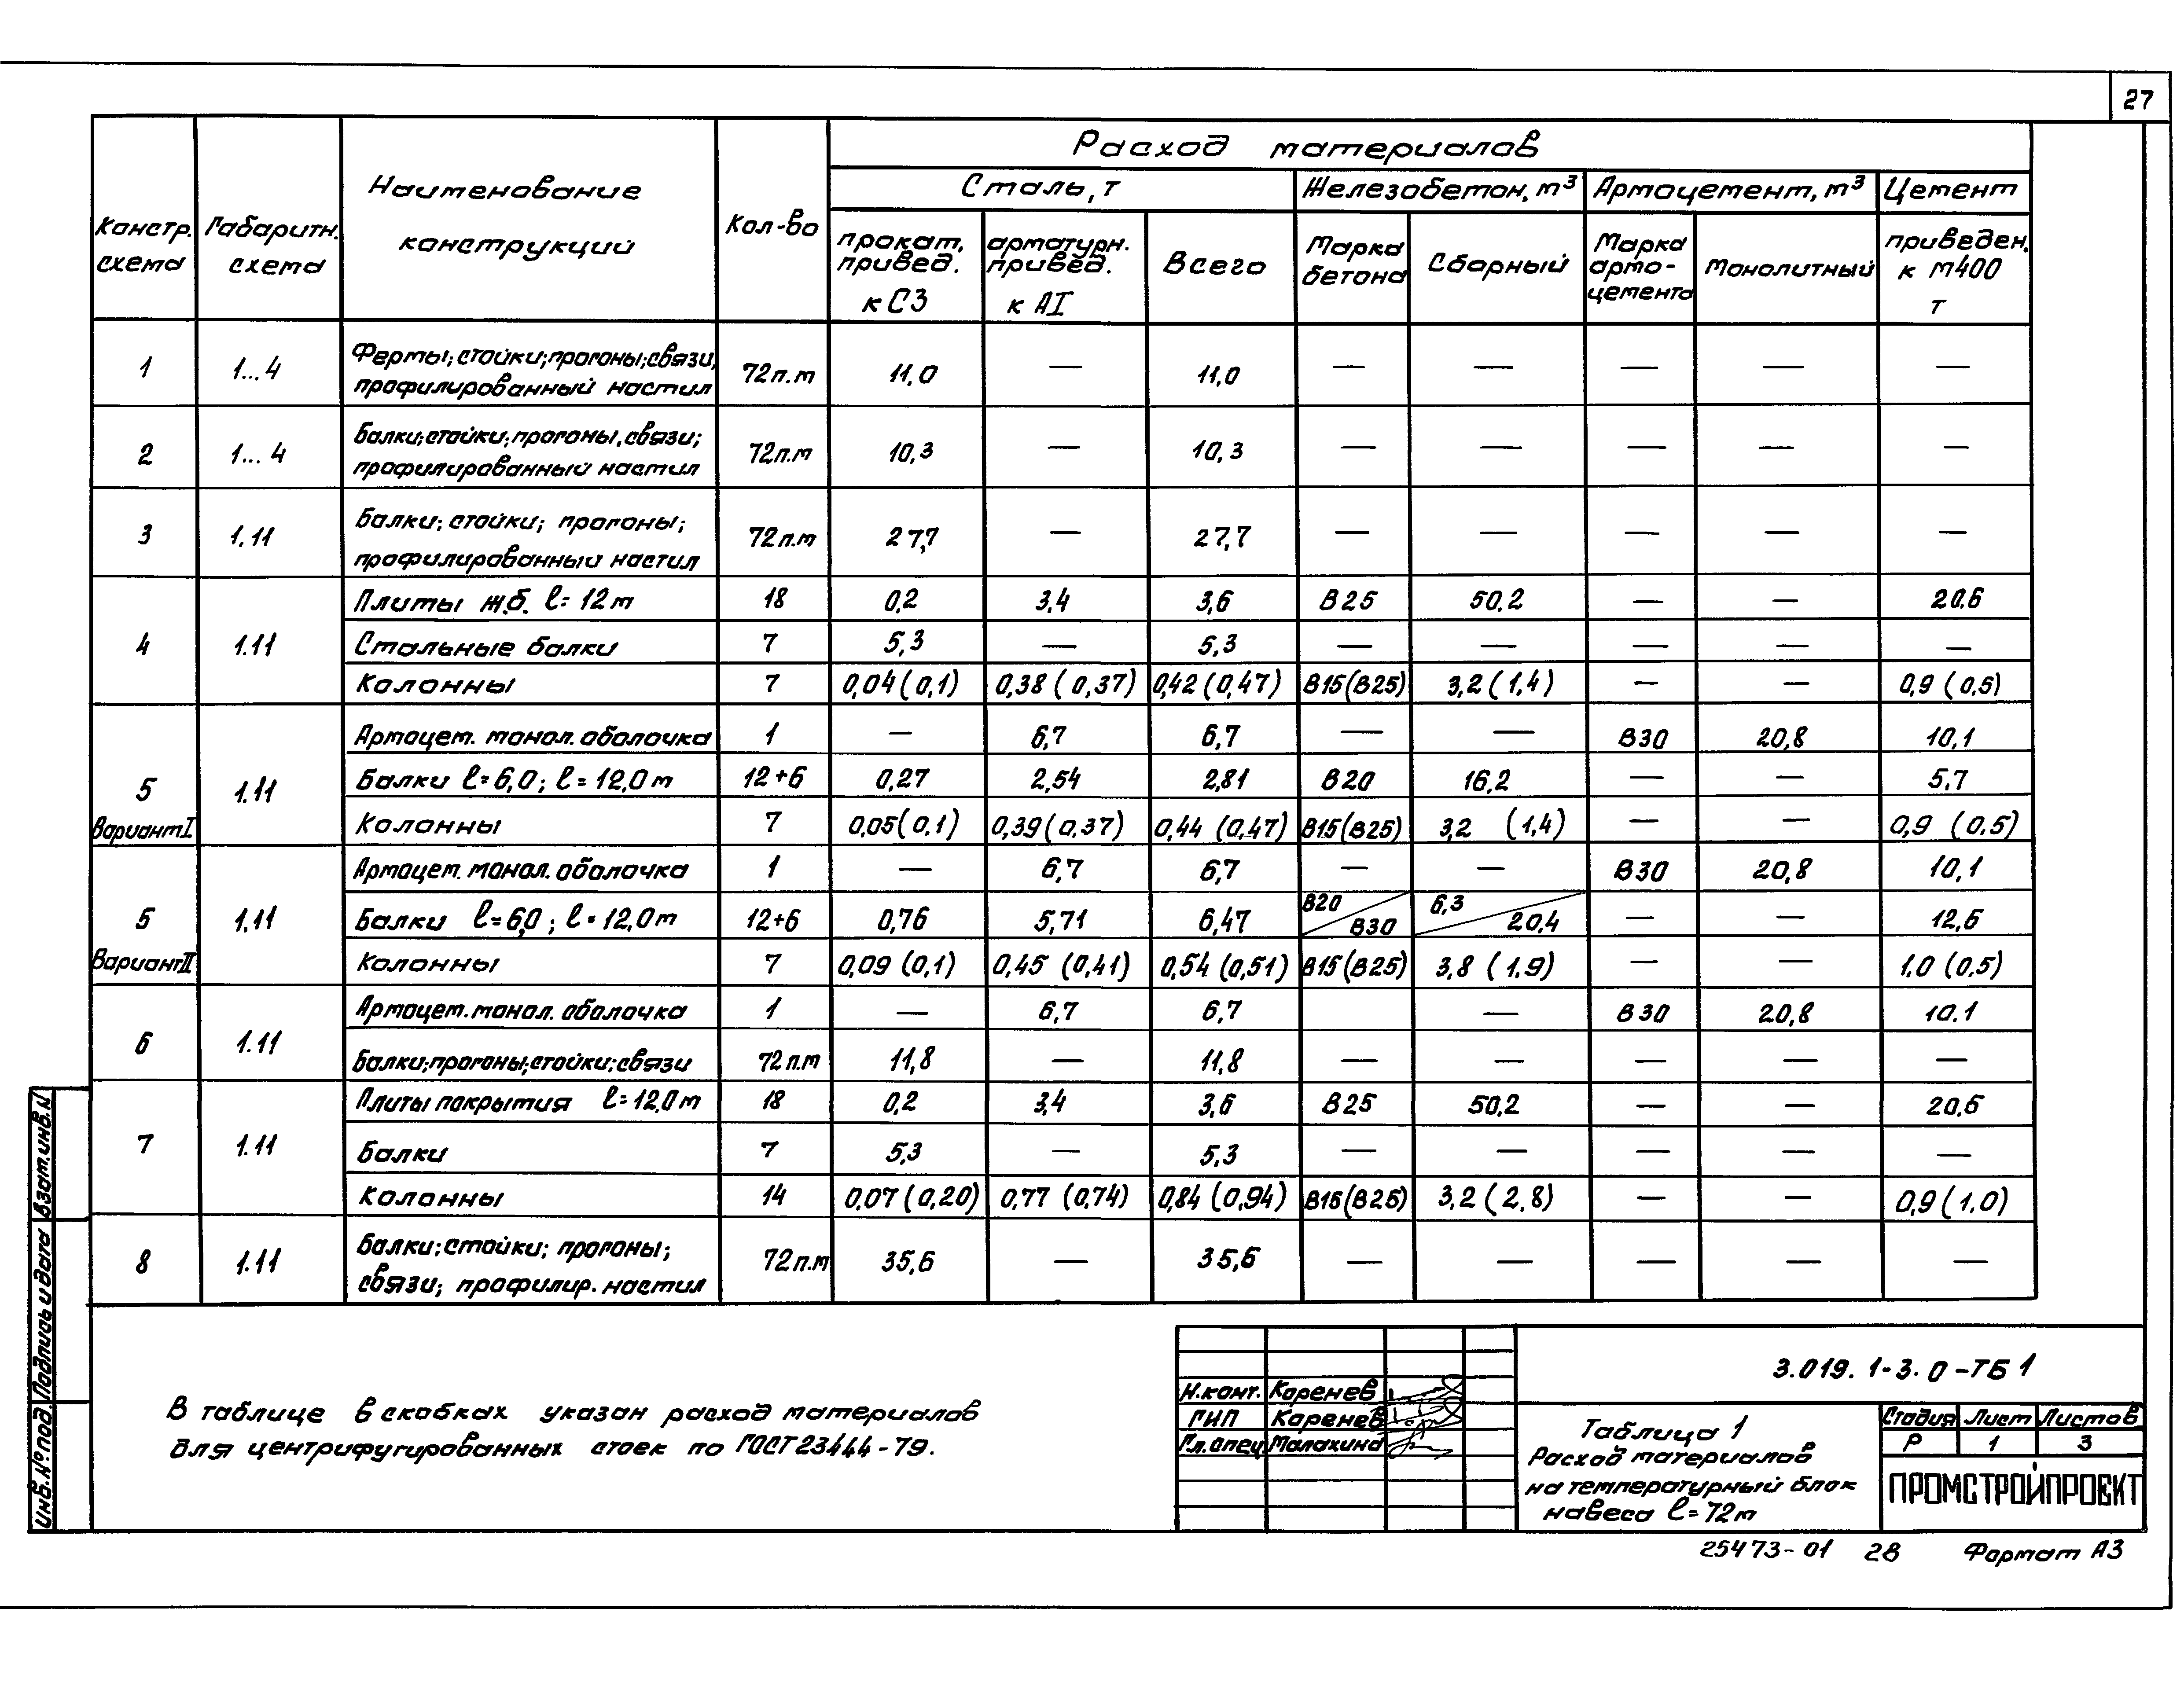 27
Расход материалов
Констр. схема
Габаритн. схема
Наименование конструкций
Кол-во
Сталь, т
Железобетон, м³
Армоцемент, м³
Цемент
прокат. привед. к С3
арматурн. привед. к АI
Всего
Марка бетона
Сборный
Марка армо-цемента
Монолитный
приведен. к М400 т
1 1...4 Фермы; стойки; прогоны; связи; 72п.м 11,0 — 11,0 — — — — —
профилированный настил
2 1...4 Балки; стойки; прогоны, связи; 72п.м 10,3 — 10,3 — — — — —
профилированный настил
3 1.11 Балки; стойки; прогоны; 72п.м 27,7 — 27,7 — — — — —
профилированный настил
Плиты ж.б. ℓ= 12м 18 0,2 3,4 3,6 В25 50.2 — — 20.6
4 1.11 Стальные балки 7 5,3 — 5,3 — — — — —
Колонны 7 0,04(0,1) 0,38(0,37) 0,42(0,47) В15(В25) 3,2(1,4) — — 0,9(0,5)
Армоцем. монол. оболочка 1 — 6,7 6,7 — — В30 20,8 10,1
5 1.11 Балки ℓ=6,0; ℓ=12,0м 12+6 0,27 2,54 2,81 В20 16,2 — — 5,7
ВариантI Колонны 7 0,05(0,1) 0,39(0,37) 0,44 (0,47) В15(В25) 3,2 (1,4) — — 0,9 (0,5)
Армоцем. монол. оболочка 1 — 6,7 6,7 — — В30 20,8 10,1
5 1.11 Балки ℓ=6,0; ℓ=12,0м 12+6 0,76 5,71 6,47 В20/В30 6,3/20,4 — — 12,6
ВариантII Колонны 7 0,09 (0,1) 0,45 (0,41) 0,54 (0,51) В15(В25) 3,8 (1,9) — — 1,0 (0,5)
Армоцем. монол. оболочка 1 — 6,7 6,7 — В30 20,8 10.1
6 1.11 Балки; прогоны; стойки; связи 72п.м 11,8 — 11,8 — — — — —
Плиты покрытия ℓ=12,0м 18 0,2 3,4 3,6 В25 50,2 — — 20.6
7 1.11 Балки 7 5,3 — 5,3 — — — — —
Колонны 14 0,07(0,20) 0,77 (0,74) 0,84 (0,94) В15(В25) 3,2(2,8) — — 0,9(1,0)
8 1.11 Балки; стойки; прогоны; 72п.м 35,6 — 35,6 — — — — —
связи; профилир. настил
В таблице в скобках указан расход материалов
для центрифугированных стоек по ГОСТ 23444-79.
3.019.1-3.0-ТБ1
Н.конт. Коренев
ГИП Коренев
Гл.спец Малахина
Таблица 1
Расход материалов
на температурный блок
навеса ℓ=72м
Стадия Лист Листов
Р 1 3
ПРОМСТРОЙПРОЕКТ
25473-01 28 Формат А3
Инв.№ подл. Подпись и дата Взам.инв.N